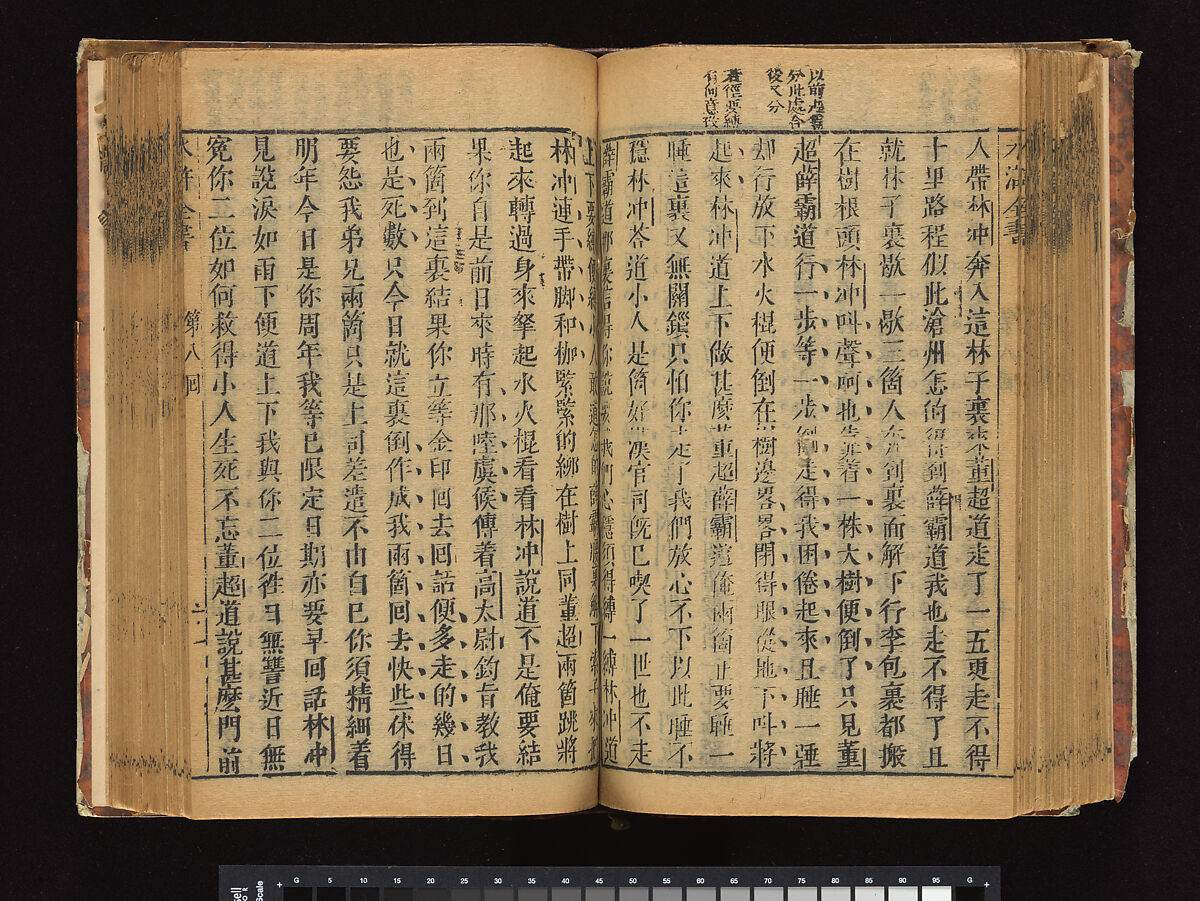 水滸全書
以前渾露
分此處合
後又分
若徑要縛
有何意致
人帶林冲奔入這林子裏來董超道走了一五更走不得
十里路程似此滄州怎的得到薛霸道我也走不得了且
就林子裏歇一歇三箇人奔到裏面解下行李包裹都搬
在樹根頭林冲叫聲呵也靠着一株大樹便倒了只見董
超薛霸道行一步等一步倒走得我困倦起來且睡一睡
却行放下水火棍便倒在樹邊畧畧閉得眼從地下叫將
起來林冲道上下做甚麼董超薛霸道俺兩箇正要睡一
睡這裏又無關鎖只怕你走了我們放心不下以此睡不
穩林冲荅道小人是箇好漢官司既已喫了一世也不走
薛霸道那裏信得你說要我們心穩須得縛一縛林冲道
上下要縛便縛小人敢道怎的薛霸腰裏解下索子來把
林冲連手帶脚和枷緊緊的綁在樹上同董超兩箇跳將
起來轉過身來拏起水火棍看看林冲說道不是俺要結
果你自是前日來時有那陸虞候傳着高太尉鈞旨教我
兩箇到這裏結果你立等金印回去回話便多走的幾日
也是死數只今日就這裏倒作成我兩箇回去快些休得
要怨我弟兄兩箇只是上司差遣不由自己你須精細着
明年今日是你周年我等已限定日期亦要早回話林冲
見說淚如雨下便道上下我與你二位徃日無讐近日無
寃你二位如何救得小人生死不忘董超道說甚麼門前
水滸全書 第八回